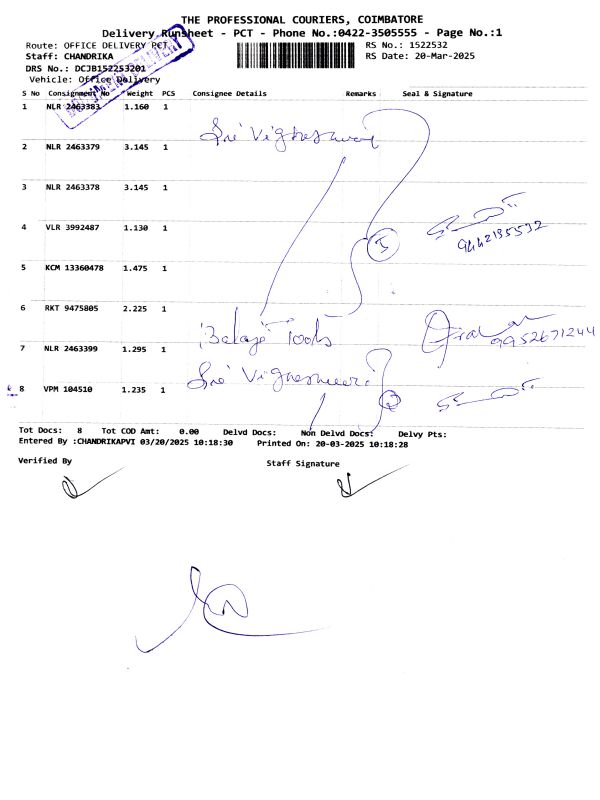 THE PROFESSIONAL COURIERS, COIMBATORE
Delivery Runsheet - PCT - Phone No.:0422-3505555 - Page No.:1
Route: OFFICE DELIVERY PCT RS No.: 1522532
Staff: CHANDRIKA RS Date: 20-Mar-2025
DRS No.: DCJB152253201
Vehicle: Office Delivery
S No Consignment No Weight PCS Consignee Details Remarks Seal & Signature
1 NLR 2463383 1.160 1
Sri Vighneshwar
2 NLR 2463379 3.145 1
3 NLR 2463378 3.145 1
4 VLR 3992487 1.130 1
9442195532
5
5 KCM 13360478 1.475 1
6 RKT 9475805 2.225 1
Balaji Tools 9952671244
7 NLR 2463399 1.295 1
Sri
8 VPM 104510 1.235 1
2
Tot Docs: 8 Tot COD Amt: 0.00 Delvd Docs: Non Delvd Docs: Delvy Pts:
Entered By :CHANDRIKAPVI 03/20/2025 10:18:30 Printed On: 20-03-2025 10:18:28
Verified By Staff Signature